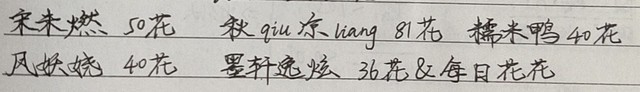 宋朱燃 50花 秋qiu凉liang 81花 糯米鸭 40花
风妖娆 40花 墨轩逸炫 36花&每日花花